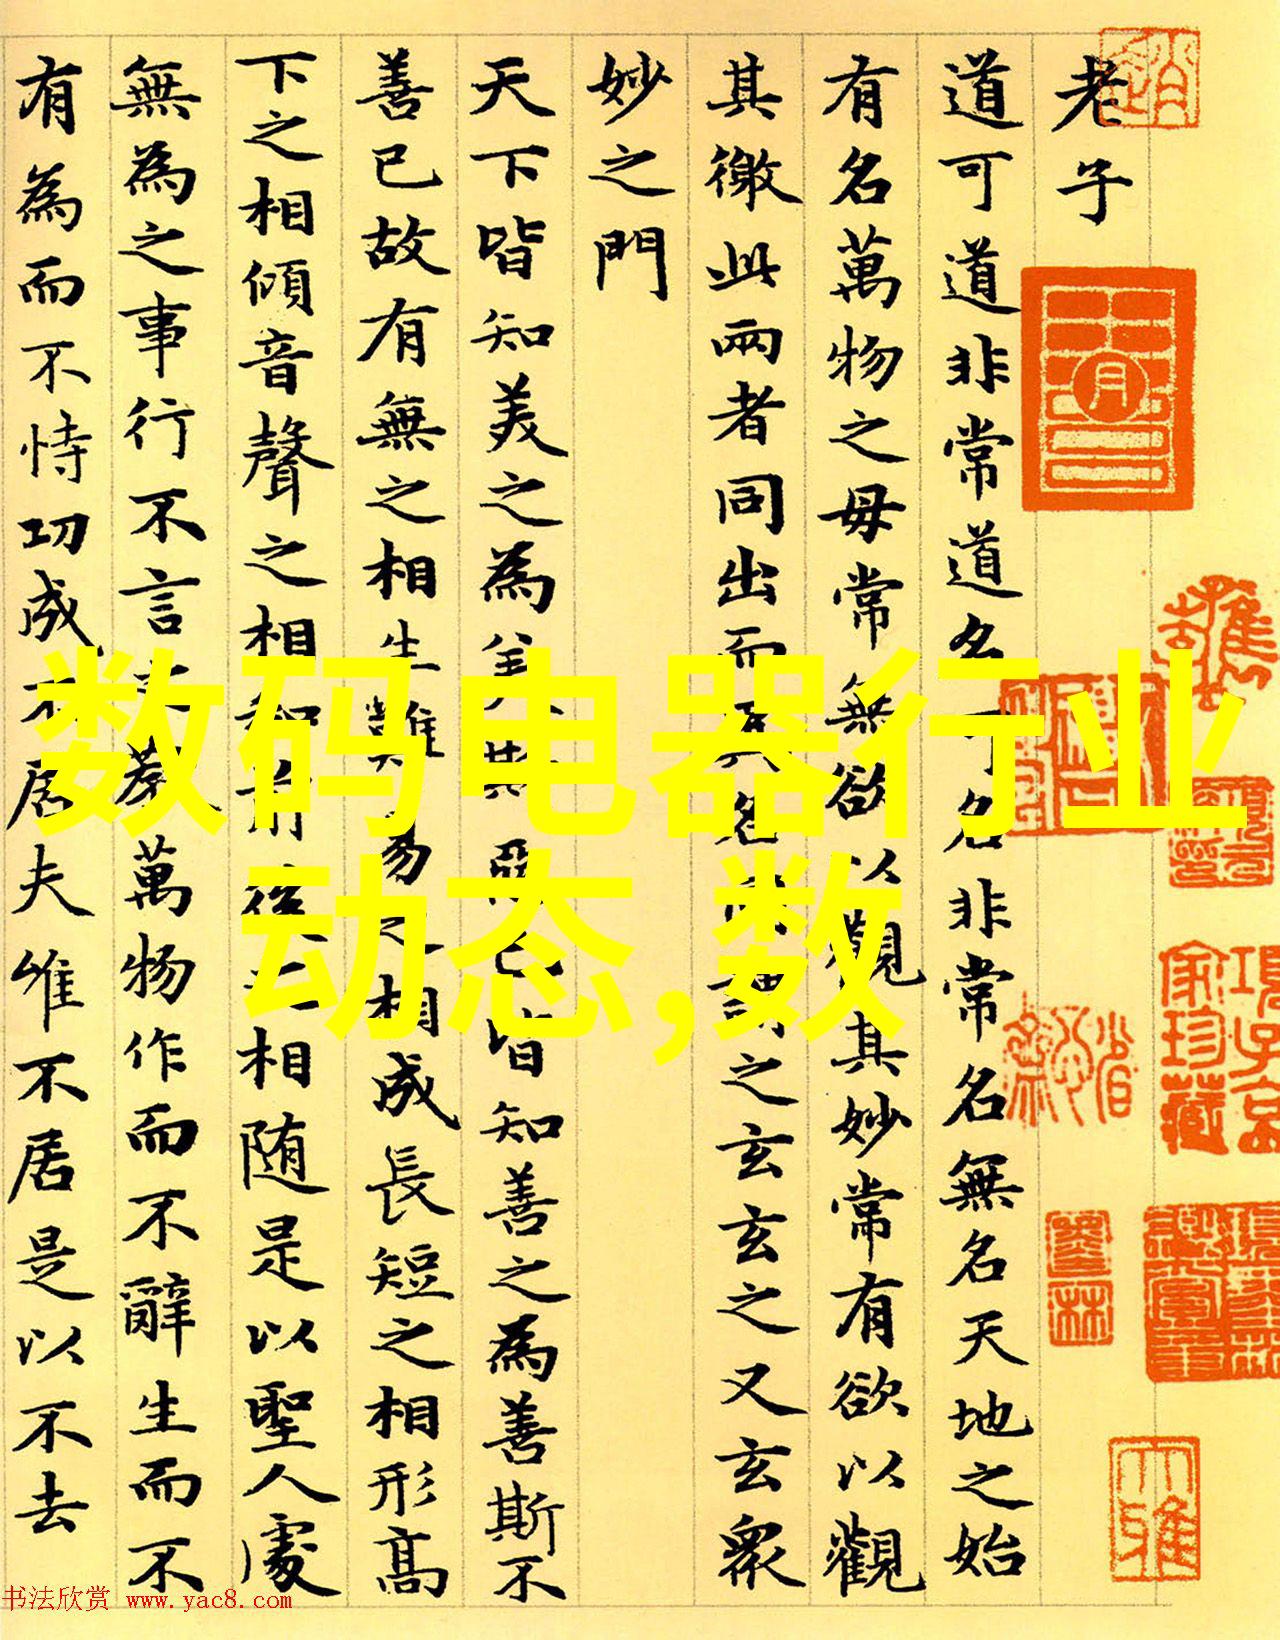 老子
道可道非常道名可名非常名無名天地之始
有名萬物之母常無欲以觀其妙常有欲以觀
其徼此兩者同出而異名同謂之玄玄之又玄衆
妙之門
天下皆知美之為美斯惡已皆知善之為善斯不
善已故有無之相生難易之相成長短之相形髙
下之相傾音聲之相和前後之相随是以聖人處
無為之事行不言之教萬物作而不辭生而不
有為而不恃功成不居夫唯不居是以不去
数码电器行业
动态,数
項子京
家珍藏
书法欣赏 www.yac8.com